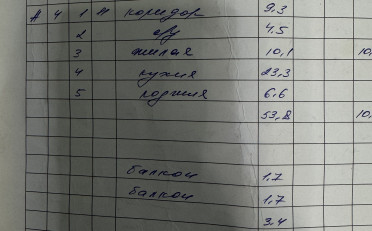 А 4 1 п коридор 9,3
2 с/у 4,5
3 жилая 10,1 10,
4 кухня 23,3
5 лоджия 6,6
53,8 10,
балкон 1,7
балкон 1,7
3.4